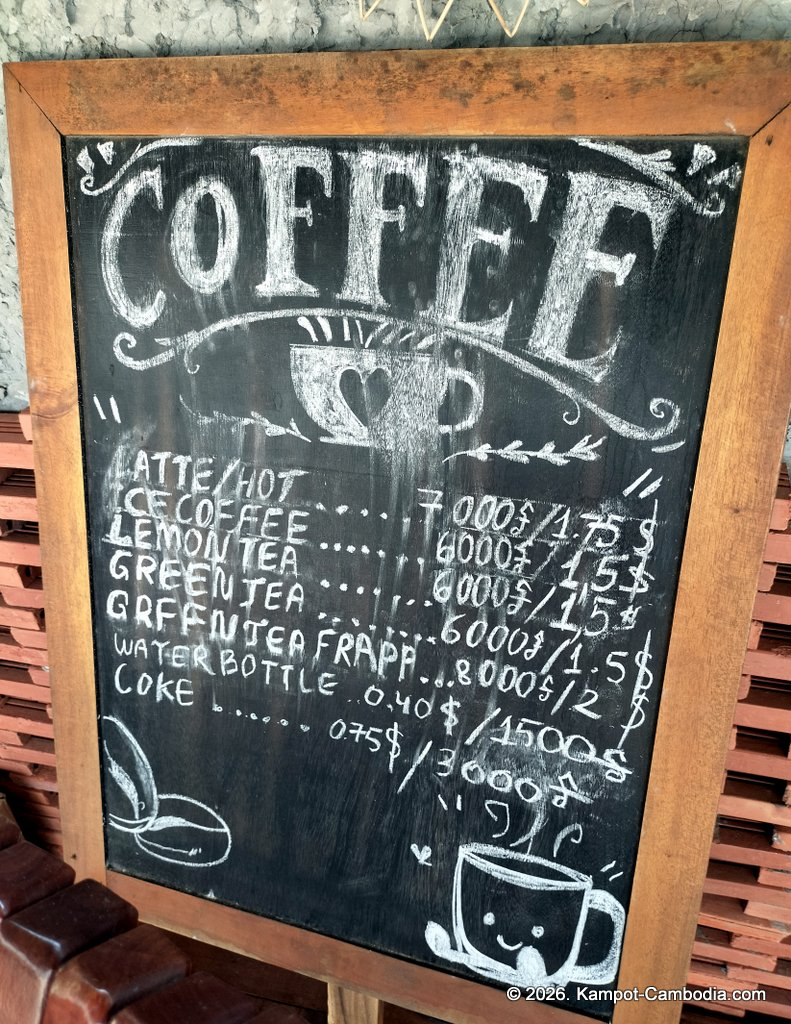 COFFEE
LATTE/HOT ...... 7000៛/1.75$
ICE COFFEE ...... 6000៛/1,5$
LEMON TEA ...... 6000៛/1,5$
GREEN TEA ...... 6000៛/1.5$
GREEN TEA FRAPP...8000៛/2$
WATER BOTTLE ..0.40$/1500៛
COKE ....... 0.75$/3000៛
© 2026. Kampot-Cambodia.com